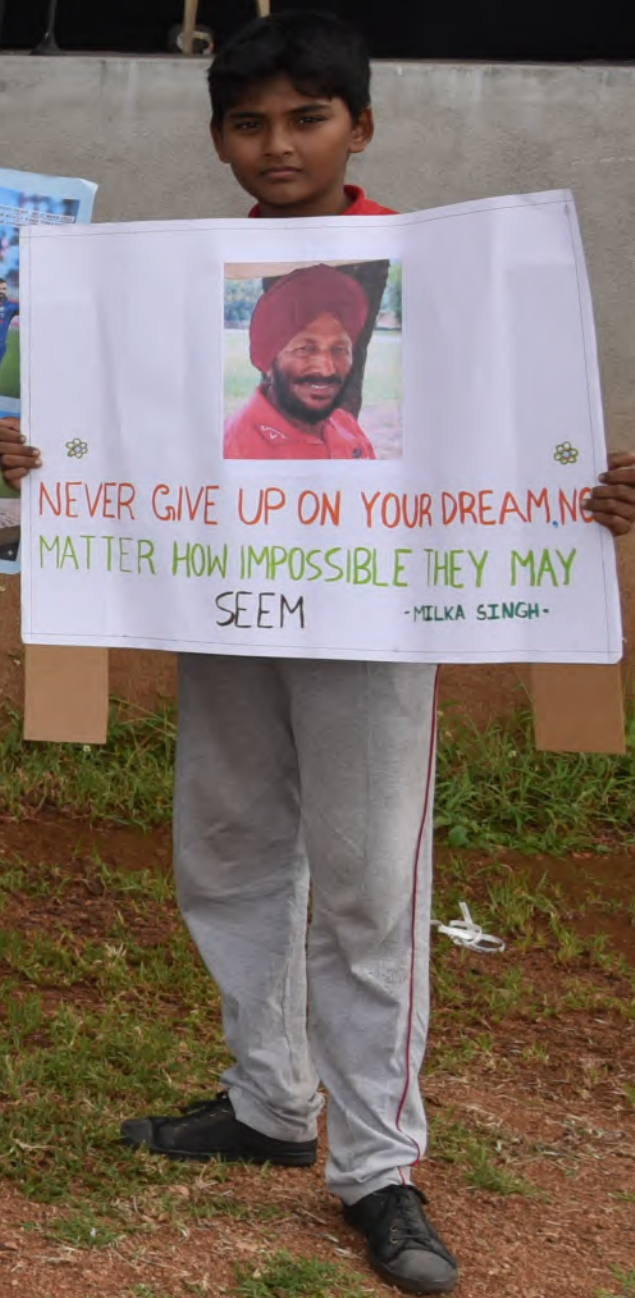 NEVER GIVE UP ON YOUR DREAM, NO
MATTER HOW IMPOSSIBLE THEY MAY
SEEM
-MILKA SINGH-